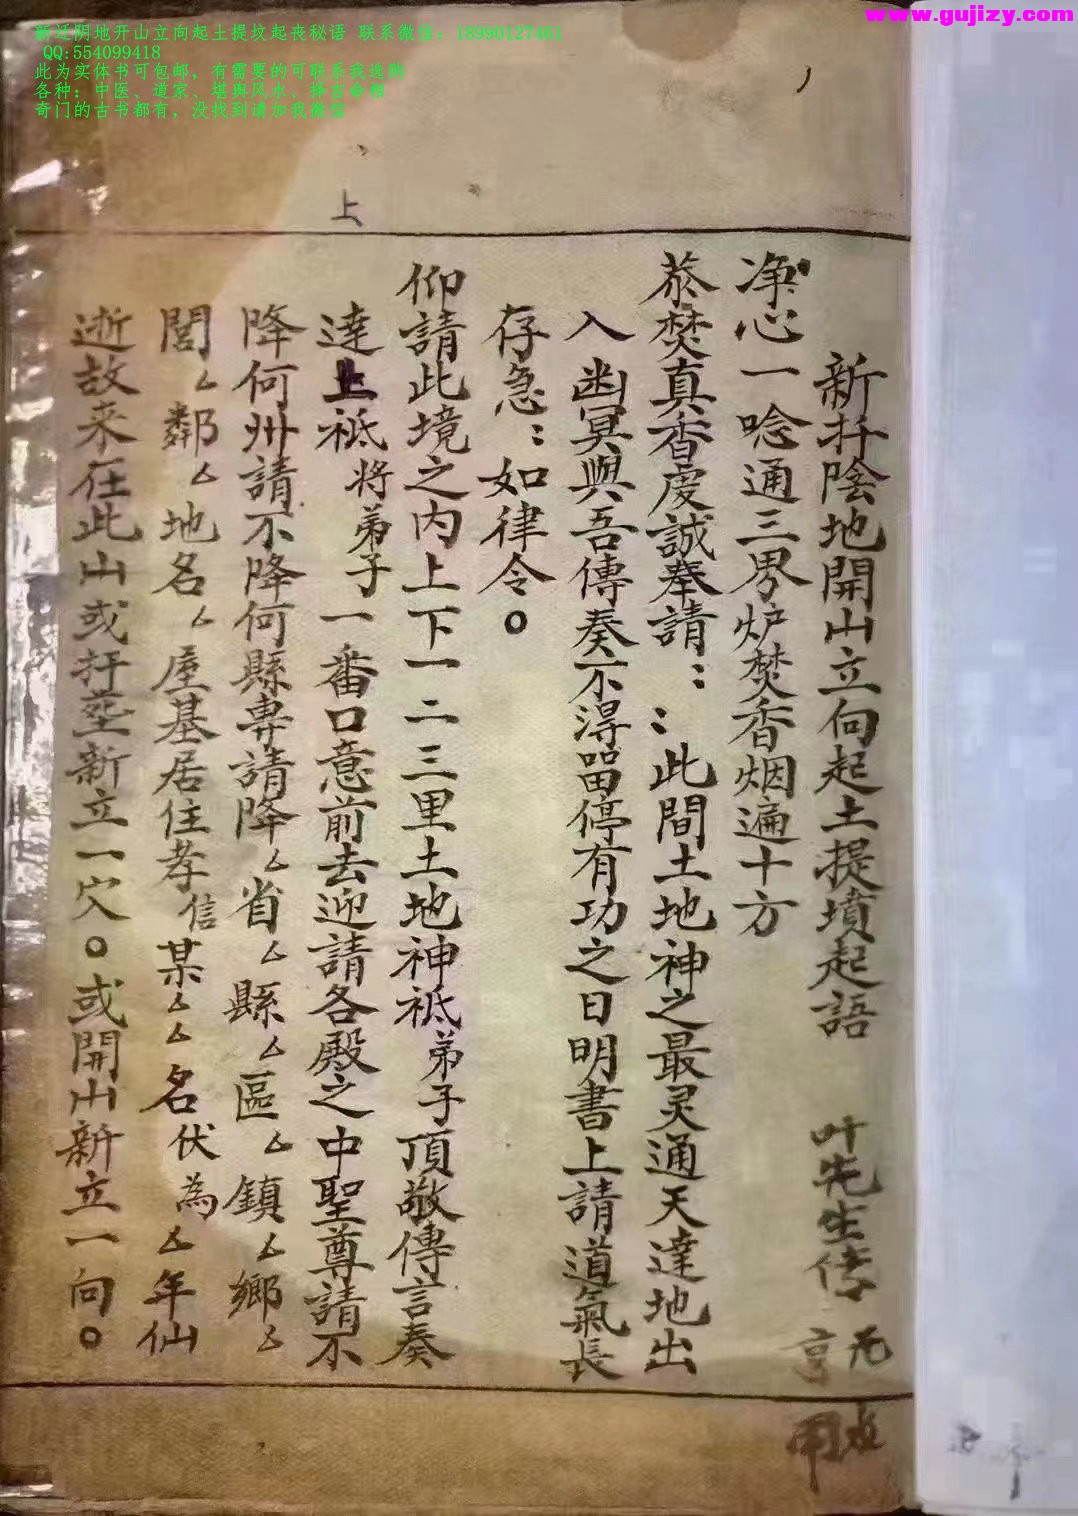 www.gujizy.com
新迁阴地开山立向起土提坟起丧秘语 联系微信：18990127461
QQ:554099418
此为实体书可包邮，有需要的可联系我选购
各种：中医、道家、堪舆风水、择吉命相
奇门的古书都有，没找到请加我微信
上
新扦陰地開山立向起土提墳起語 叶先生傳
净心一唸通三界炉焚香烟遍十方
焚真香虔誠奉請：：此間土地神之最灵通天達地出
入幽冥與吾傳奏不得留停有功之日明書上請道氣長
存急：如律令。
仰請此境之内上下一二三里土地神祗弟子頂敬傳言奏
達上祗將弟子一番口意前去迎請各殿之中聖尊請不
降何州請不降何縣專請降厶省厶縣厶區厶鎮厶鄉厶
閭厶鄰厶地名厶屋基居住孝信某厶厶名伏為厶年仙
逝故来在此山或扦塟新立一穴。或開山新立一向。